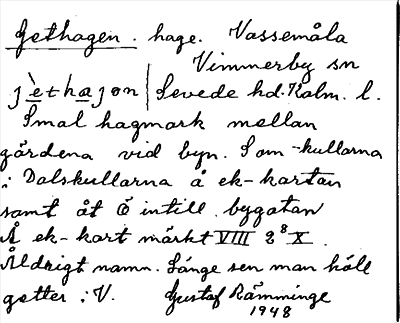 Gethagen. hage. Vassemåla
Vimmerby sn
jèthajən | Sevede hd. Kalm. l.
Smal hagmark mellan
gårdena vid byn. Som -kullarna
i Dalskullarna å ek-kartan
samt åt Ö intill bygatan
Å ek-kart märkt VIII 2⁸ X.
Åldrigt namn. Länge sen man höll
getter i V. Gustaf Rämminge
1948